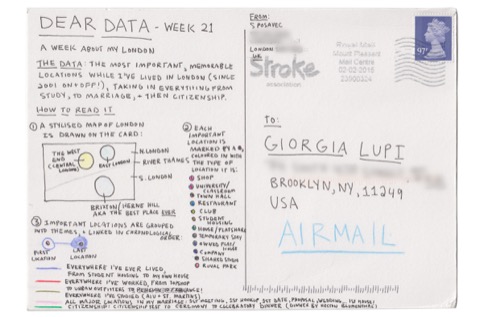 DEAR DATA - WEEK 21
A WEEK ABOUT MY LONDON
THE DATA: THE MOST IMPORTANT, MEMORABLE
LOCATIONS WHILE I'VE LIVED IN LONDON (SINCE
2001 ON + OFF!), TAKING IN EVERYTHING FROM
STUDY, TO MARRIAGE, + THEN CITIZENSHIP.
HOW TO READ IT
① A STYLISED MAP OF LONDON
IS DRAWN ON THE CARD:
THE WEST
END
(CENTRAL
LONDON)
EAST LONDON
N. LONDON
RIVER THAMES
S. LONDON
BRIXTON/HERNE HILL
AKA THE BEST PLACE EVER
② EACH
IMPORTANT
LOCATION IS
MARKED BY A
COLOURED IN WITH
THE TYPE OF
LOCATION IT IS:
SHOP
UNIVERSITY/
CLASSROOM
TOWN HALL
RESTAURANT
CLUB
STUDENT
HOUSING
HOUSE/FLATSHARE
TEMPORARY STAY
OWNED FLAT/
COMPANY
SHARED STUDIO
ROYAL PARK
③ IMPORTANT LOCATIONS ARE GROUPED
INTO THEMES, + LINKED IN CHRONOLOGICAL
ORDER:
FIRST
LOCATION
LAST
LOCATION
EVERYWHERE I'VE EVER LIVED,
FROM STUDENT HOUSING TO MY OWN HOUSE
EVERYWHERE I'VE WORKED, FROM
TO URBAN OUTFITTERS TO
EVERYWHERE I'VE STUDIED
FROM:
S POSAVEC
LONDON
UK
Royal Mail
Mount Pleasant
Mail Centre
02-02-2016
Stroke
association
97P
TO:
GIORGIA LUPI
BROOKLYN, NY, 11249
USA
AIRMAIL